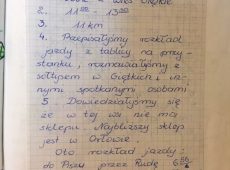 2. 11⁰⁰ - 13⁰⁰
3. 11 km
4. Przepisałyśmy rozkład
jazdy z tablicy na przy-
stanku, rozmawiałyśmy z
sołtysem w Giętkich i in-
nymi spotkanymi osobami
5. Dowiedziałyśmy się
że w tej wsi nie ma
sklepu. Najbliższy sklep
jest w Orłowie.
Oto rozkład jazdy:
do Piszy przez Rudę: